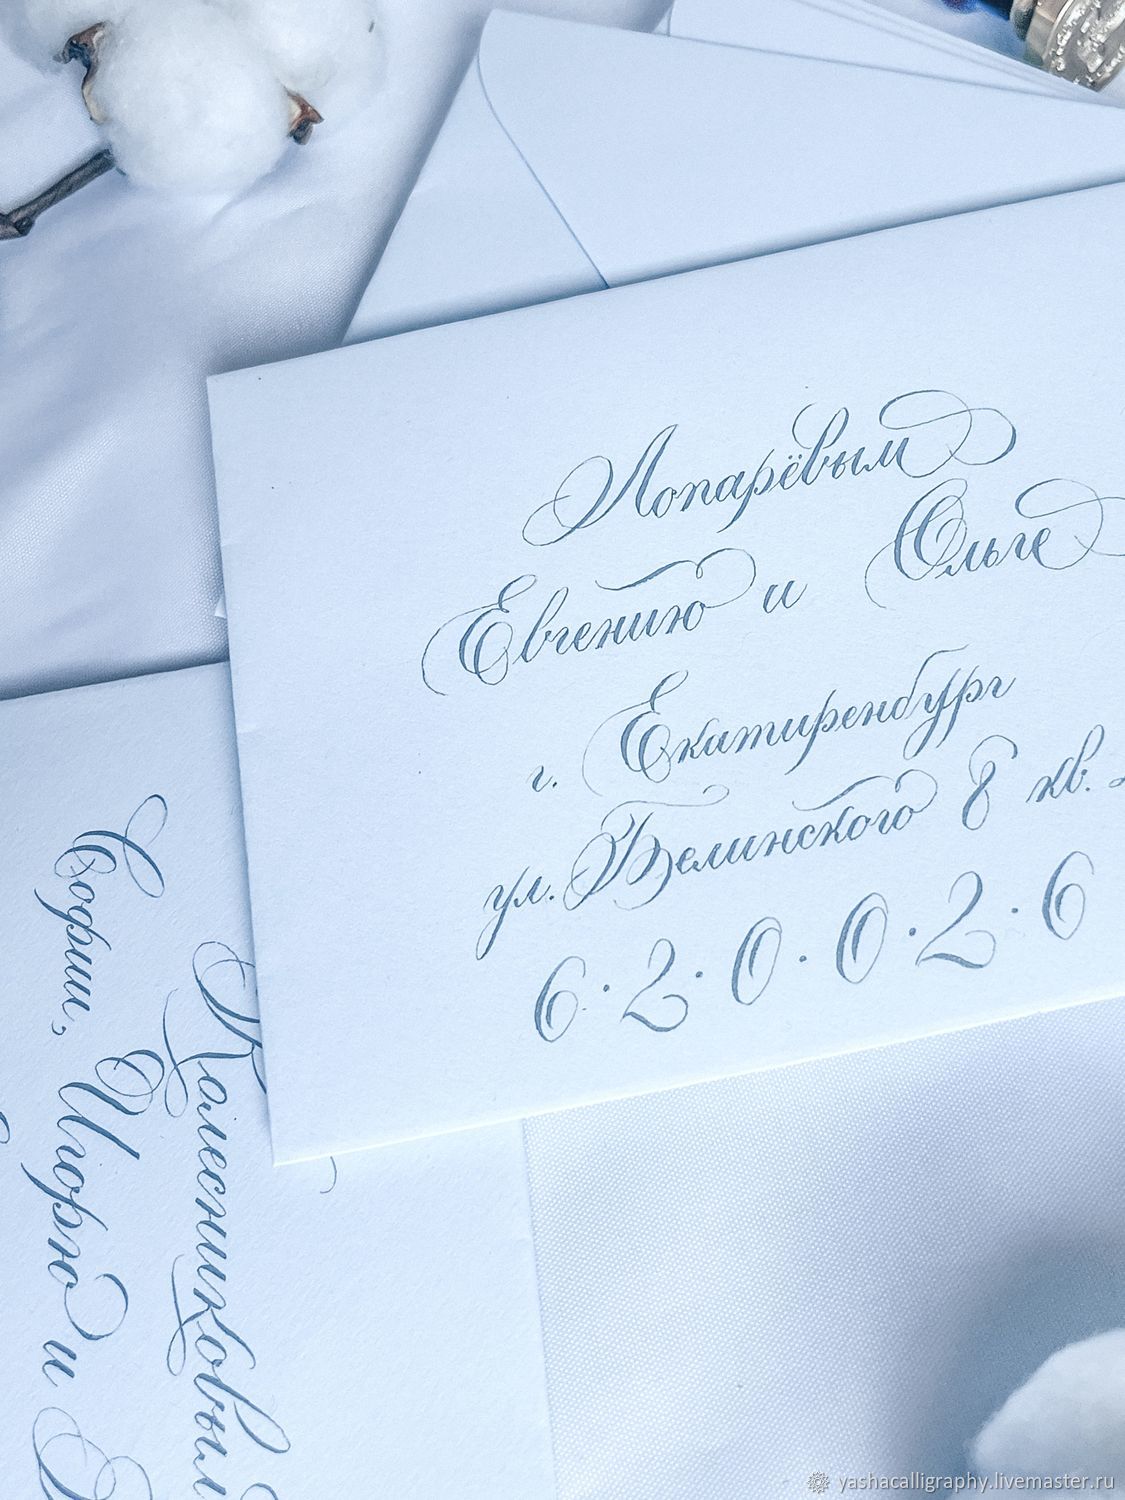 Лопарёвым
Евгению и Ольге
г. Екатиренбург
ул. Белинского 8 кв.
6·2·0·0·2·6
Колесниковым
Софии, Игорю и
yashacalligraphy.livemaster.ru